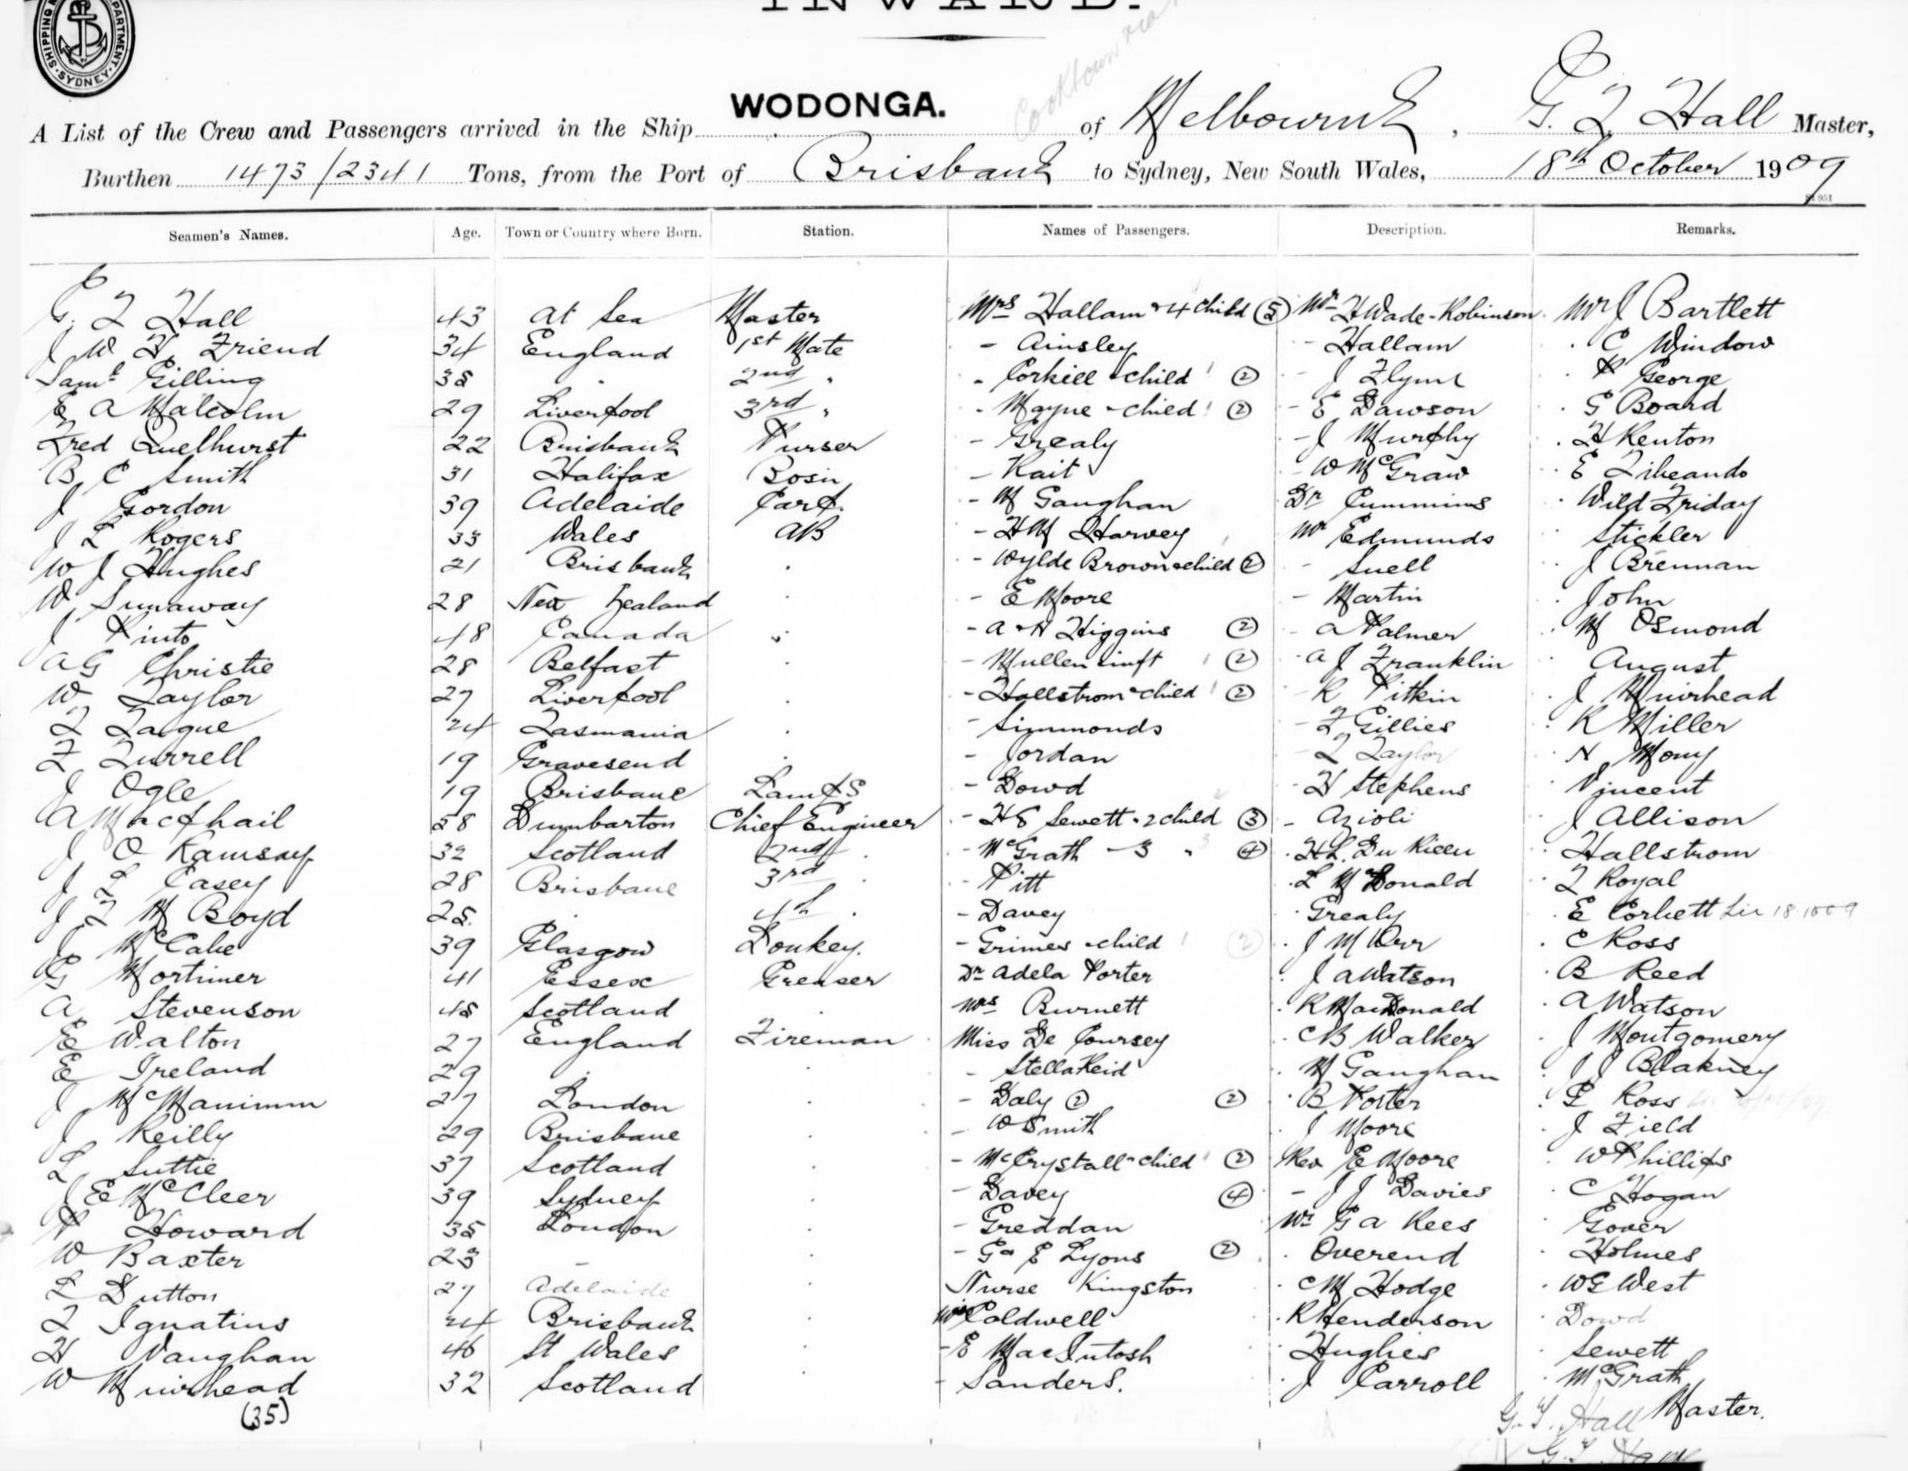 SHIPPING DEPARTMENT. SYDNEY
INWARD.
Cooktown via
WODONGA.
A List of the Crew and Passengers arrived in the Ship of Melbourne, G. T. Hall Master,
Burthen 1473/2341 Tons, from the Port of Brisbane to Sydney, New South Wales, 18th October 1909
Seamen's Names. Age. Town or Country where Born. Station. Names of Passengers. Description. Remarks.
G. T Hall 43 At Sea Master Mrs Hallam & 4 child (5) Mr H Wade-Robinson Mr J Bartlett
J W H Friend 34 England 1st Mate - Ainsley - Hallam . C Window
Saml Gilling 35 . 2nd " - Corkill & child (2) - J Flynn . P George
E A Malcolm 29 Liverpool 3rd " - Mayne & child (2) - E Dawson . G Board
Fred Quelhurst 22 Brisbane Purser - Grealy - J Murphy . H Kenton
B C Smith 31 Halifax Bosn - Kait - W McGraw . E Tibeando
J Gordon 39 Adelaide Carp. - M Gaughan Dr Cummins . Wild Friday
J L Rogers 33 Wales AB - H M Harvey Mr Edmunds . Stickler
W J Hughes 21 Brisbane . - Wylde Brown & child (2) - Snell . J Brennan
W Sunaway 28 New Zealand . - E Moore - Martin . John
J Pinto 48 Canada . - A & H Higgins (2) - A Palmer . M Osmond
A G Christie 28 Belfast . - Mullen & inft (2) - A J Franklin . August
W Taylor 27 Liverpool . - Hallstrom & child (2) - R Pitkin . J Muirhead
T Tague 24 Tasmania . - Simmonds - F Gillies . R Miller
F Turrell 19 Gravesend . - Jordan - T Taylor . N Mony
J Ogle 19 Brisbane Lamps - Dowd - H Stephens . Vincent
A MacPhail 58 Dumbarton Chief Engineer - H S Sewett & 2 child (3) - Azioli . J Allison
J O Ramsay 32 Scotland 2nd . - McGrath - 3 " (4) . H L. Du Rieu . Hallstrom
J L Casey 28 Brisbane 3rd . - Pitt . L McDonald . T Royal
J F M Boyd 25 . 4th . - Davey . Grealy . E Corbett 18.10.09
J McCabe 39 Glasgow Donkey. - Grimes & child (2) . J M Orr . C Ross
G Mortimer 41 Essex Greaser Dr Adela Porter . J A Watson . B Reed
A Stevenson 45 Scotland Mrs Burnett . R MacDonald . A Watson
E Walton 27 England Fireman Miss De Coursey . C B Walker . J Montgomery
E Ireland 29 . . - Stella Reid . M Gaughan . J J Blakney
J McManimm 27 London . - Daly (2) (2) . B Porter . E Ross
J Reilly 29 Brisbane . - W Smith . J Moore . J Field
L Suttie 37 Scotland . - McCrystall & child (2) Rev E Moore . W Phillips
J E McCleer 39 Sydney . - Davey (4) - J J Davies . C Hogan
P Howard 35 London . - Greddan Mr G A Rees . Gover
W Baxter 23 - . - G & E Lyons (2) . Overend . Holmes
L Dutton 27 Adelaide . Nurse Kingston . C M Hodge . W G West
T Ignatius 24 Brisbane . Miss Coldwell . R Henderson . Dowd
H Vaughan 46 St Wales . - E MacIntosh . Hughes . Sewett
W Muirhead 32 Scotland . - Sanders. . J Carroll . McGrath
(35) G. T. Hall Master.